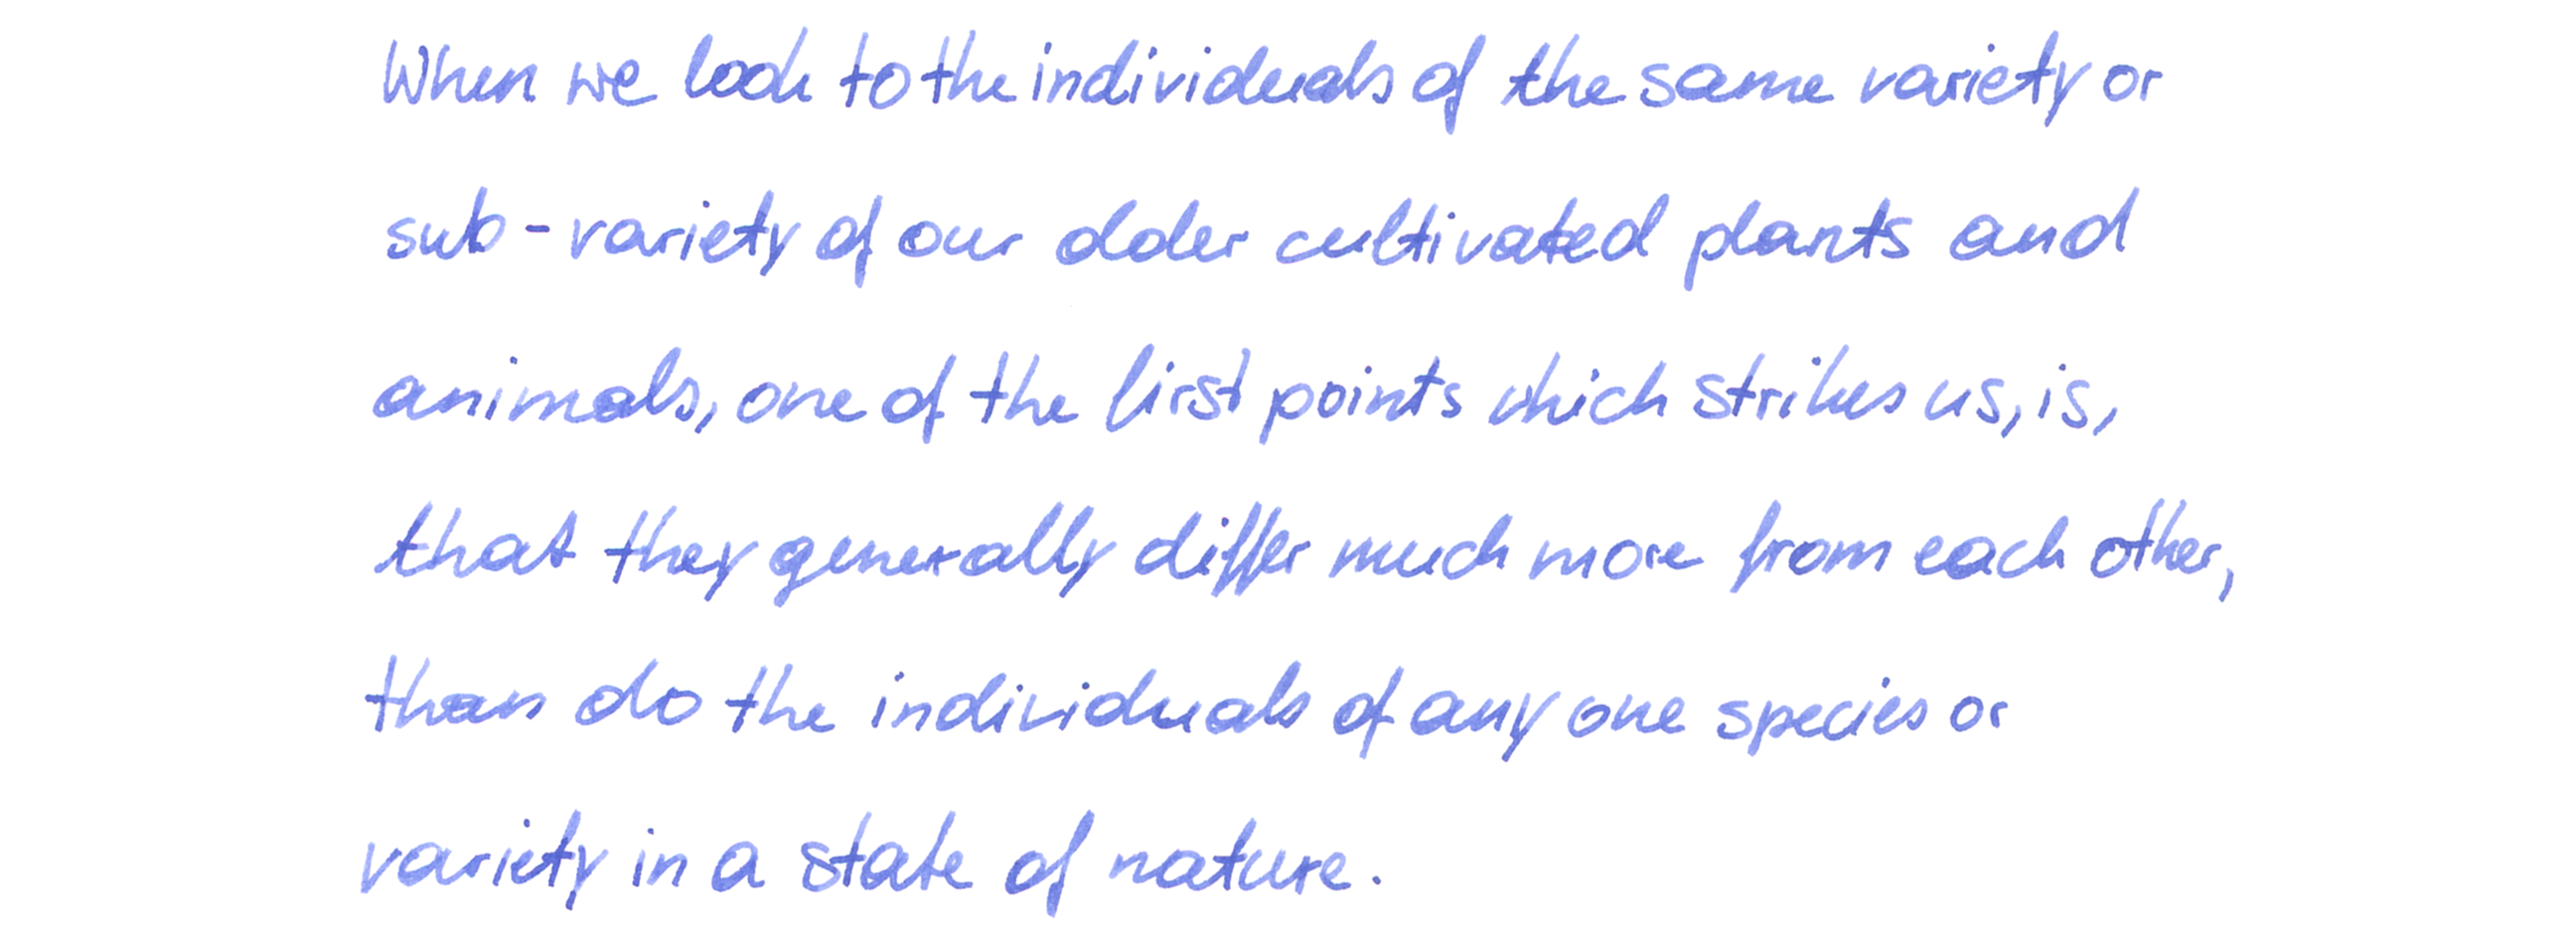 When we look to the individuals of the same variety or
sub-variety of our older cultivated plants and
animals, one of the first points which strikes us, is,
that they generally differ much more from each other,
than do the individuals of any one species or
variety in a state of nature.